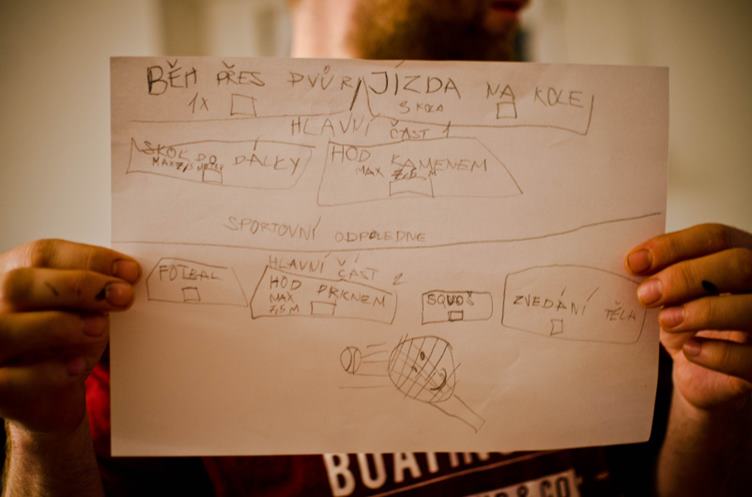 BĚH PŘES DVŮR
1X
JÍZDA NA KOLE
3 KOLA
HLAVNÍ ČÁST 1
SKOK DO DÁLKY
MAX
HOD KAMENEM
MAX 7,5 M
SPORTOVNÍ ODPOLEDNE
HLAVNÍ
ČÁST 2
FOTBAL
HOD PRKNEM
MAX
7,5 M
SQUOŠ
ZVEDÁNÍ TĚLA
BOATING
& CO